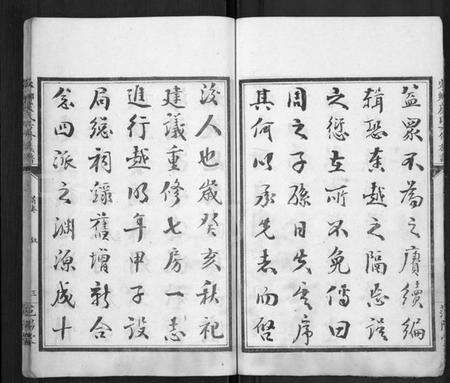 益眾不為之賡續編
輯恐秦越之隔忘誤
之愆在所不免傳曰
周之子孫日失其序
其何以承先志而啓
後人也歲癸亥秋祀
建議重修七房一志
進行越明年甲子設
局總祠錄舊增新合
念四派之淵源成十